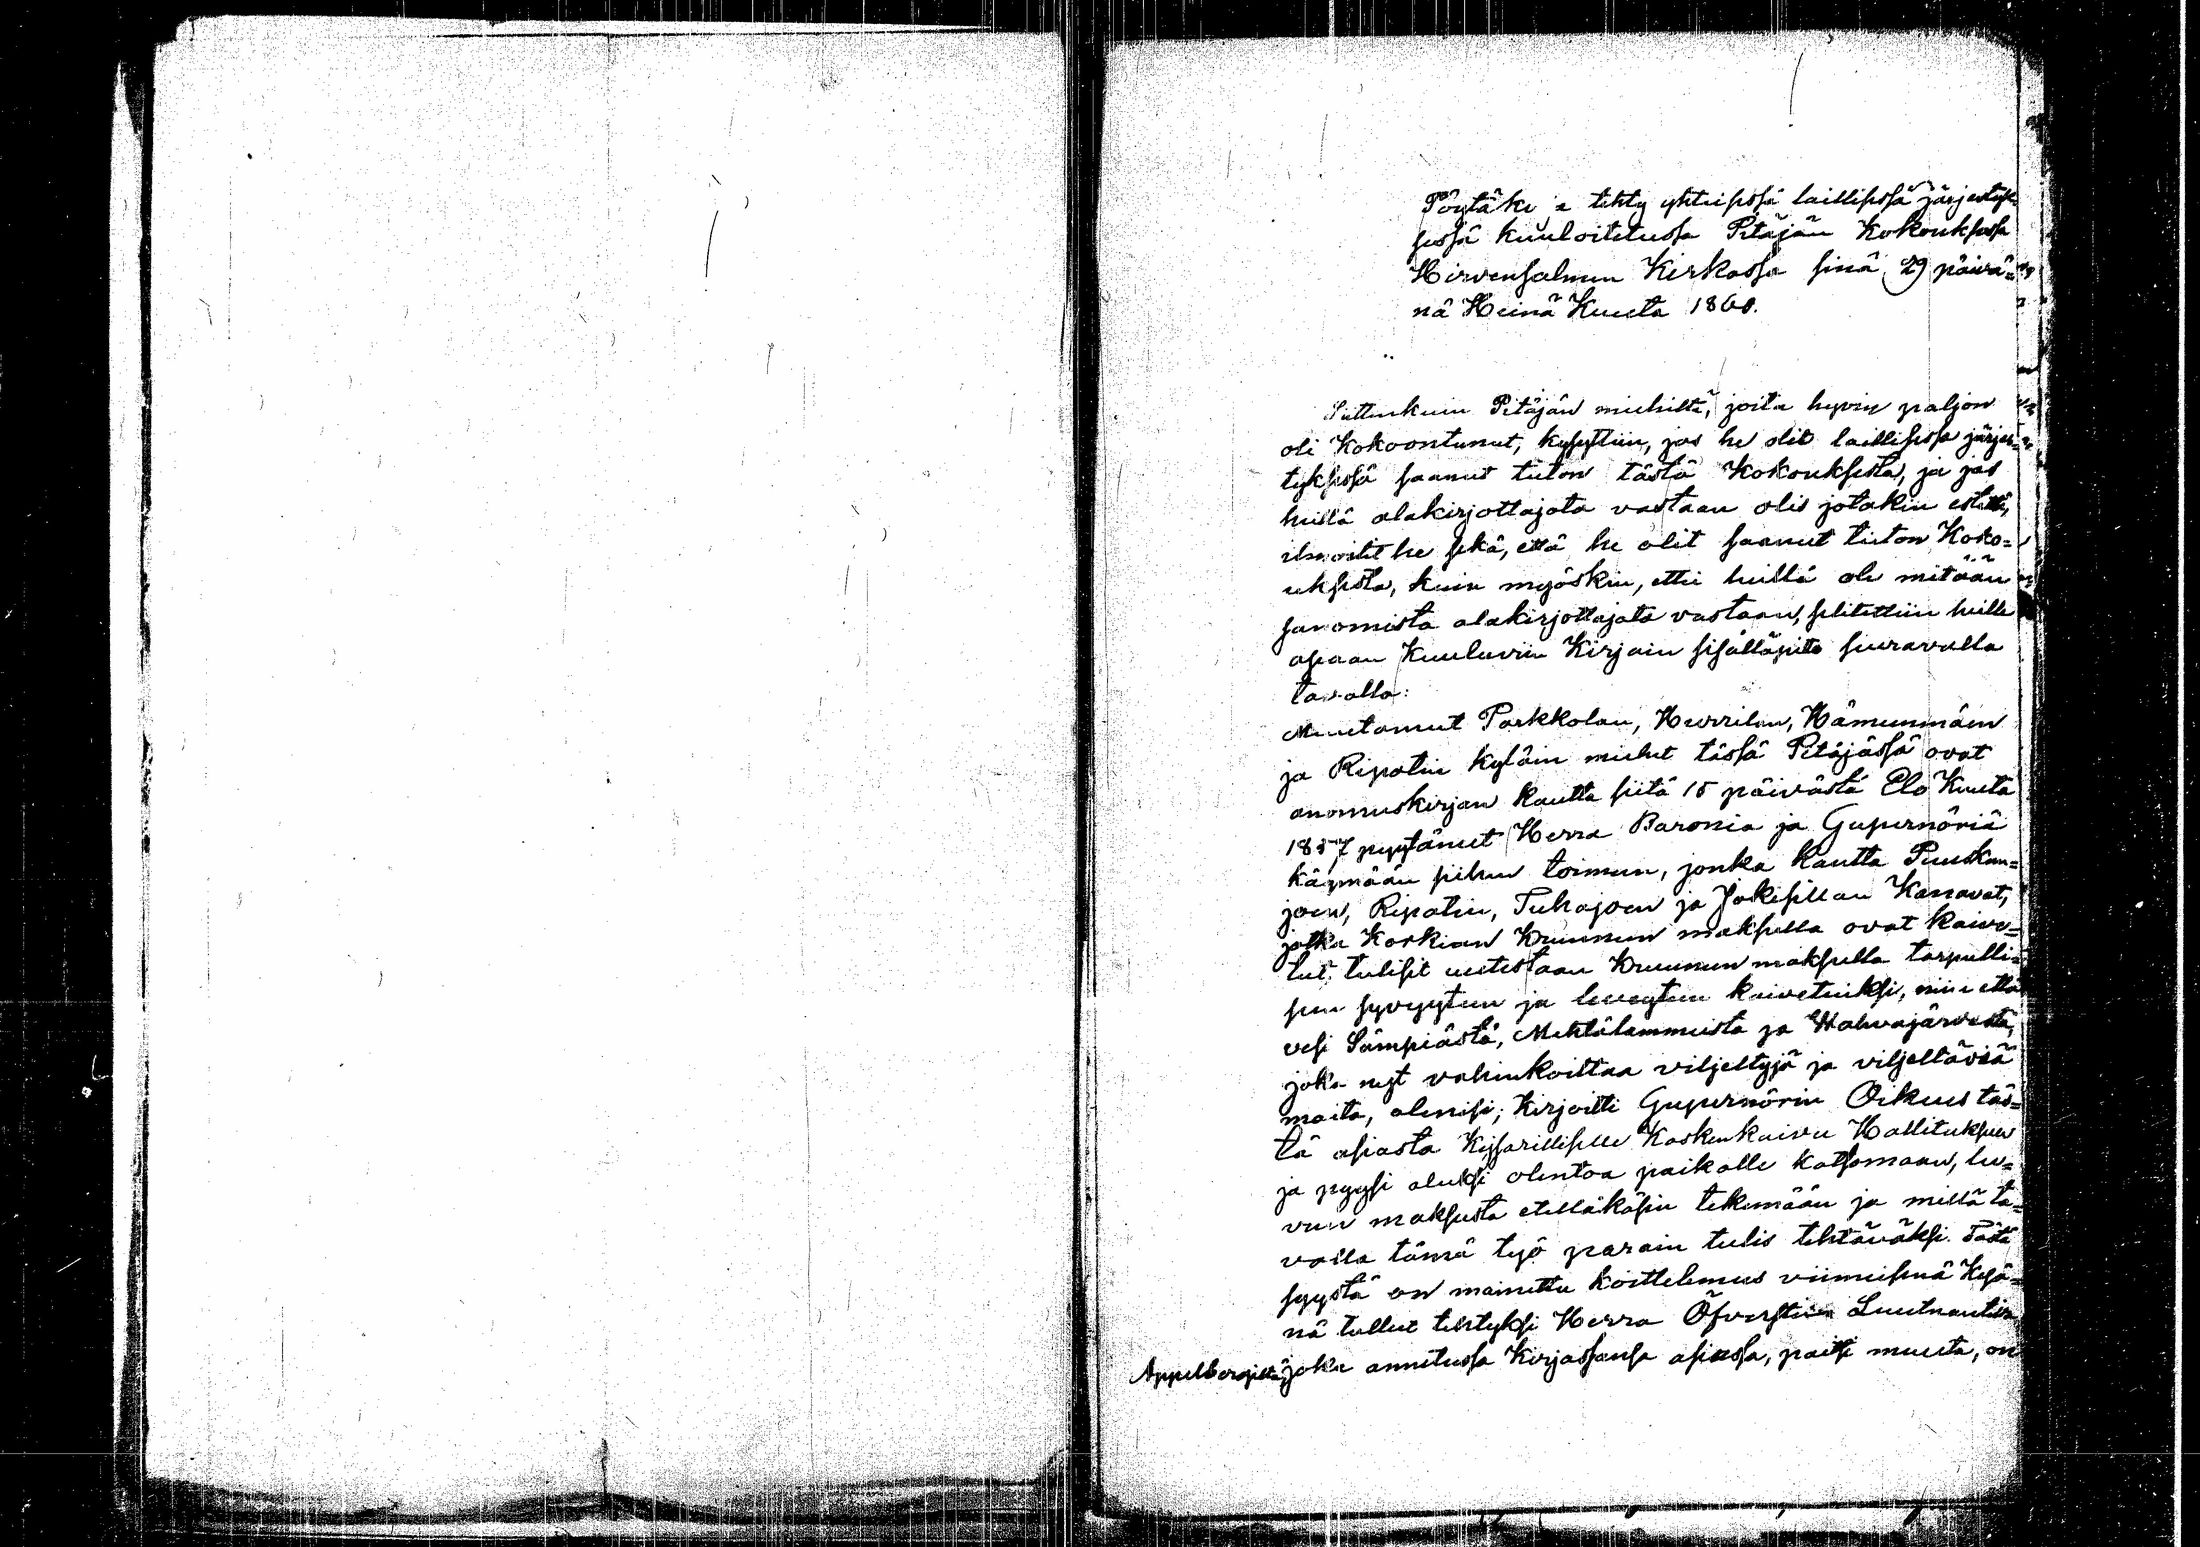 Pöytäki a tehty yhteisessä laillisessa järjestyk-
sessä kuuloitetussa Pitäjän Kokouksessa
Hirvensalmen Kirkossa sinä 29 päivä=
nä Heinä Kuuta 1860.
Sittenkuin Pitäjän miehiltä, joita hyvin paljon
oli Kokoontunut, kysyttiin, jos he olit laillisessa järjes=
tyksessä saanut tieton tästä Kokouksesta, ja jos
heillä alakirjottajata vastaan olis jotakin estettä,
ilmoitit he sekä, että he olit saanut tieton Koko=
uksesta, kuin myöskin, ettei heillä ole mitään
sanomista alakirjottajata vastaan, selitettiin heille
asiaan kuuluvien Kirjain sisälläpito seuravalla
tavalla:
Muutamat Parkkolan, Hurrilan, Hämeenmäen
ja Ripatin kyläin miehet tässä Pitäjässä ovat
anomuskirjan kautta siitä 15 päivästä Elo Kuuta
1857 pyytäneet Herra Baronia ja Gupernöriä
käymään siihen toimeen, jonka kautta Puuskan=
joen, Ripatin, Tuhajoen ja Jokisillan Kanavat,
jotka Korkian Kruunun maksulla ovat kaive=
tut, tulisit uutestaan Kruunun maksulla tarpelli=
sen syvyyteen ja leveyteen kaivetuiksi, niin että
vesi Sämpiästä, Mehtälammista ja Wahvajärvestä,
joka nyt vahinkoittaa viljeltyjä ja viljeltäviä
maita, alenisi; Kirjoitti Gupernörin Oikeus täs=
tä asiasta Kejsarilliselle Koskenkaivu Hallituksen
ja pyysi aluksi olentoa paikalle katsomaan, lu=
vun maksusta etelläkäsin tekemään ja millä ta=
valla tämä työ parain tulis tehtäväksi. Tästä
syystä on mainittu koittelemus viimeisnä Kesä=
nä tullut tehtyksi Herra Öfverstin Luutnantilta
Appelbergiltä, joka annetussa Kirjassansa asiassa, paitsi muuta, on